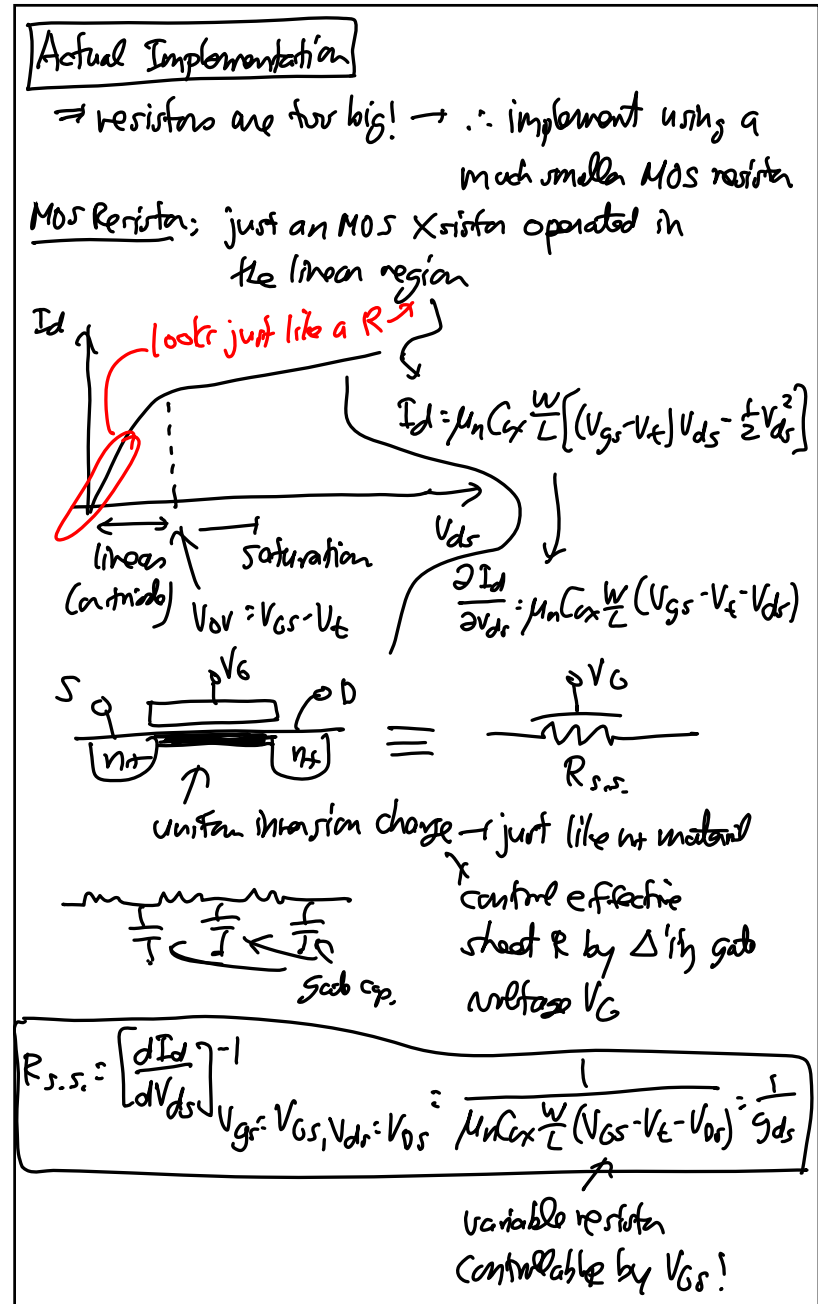 Actual Implementation
⇒ resistors are too big! → ∴ implement using a
much smaller MOS resistor
MOS Resistor: just an MOS Xsistor operated in
the linear region
Id
looks just like a R
Id = μnCox W/L [(Vgs-Vt)Vds - 1/2 Vds²]
Vds
linear
saturation
(or triode)
VOV = VGS - Vt
∂Id/∂vds = μnCox W/L (Vgs - Vt - Vds)
S VG D
n+ n+
≡
VG
Rs.s.
uniform inversion charge → just like n+ material
control effective
sheet R by Δ'ing gate
voltage VG
gate cap.
Rs.s. = [dId/dVds]⁻¹ Vgs=VGS, Vds=VDS = 1/(μnCox W/L (VGS - Vt - VDS)) = 1/gds
variable resistor
controllable by VGS!